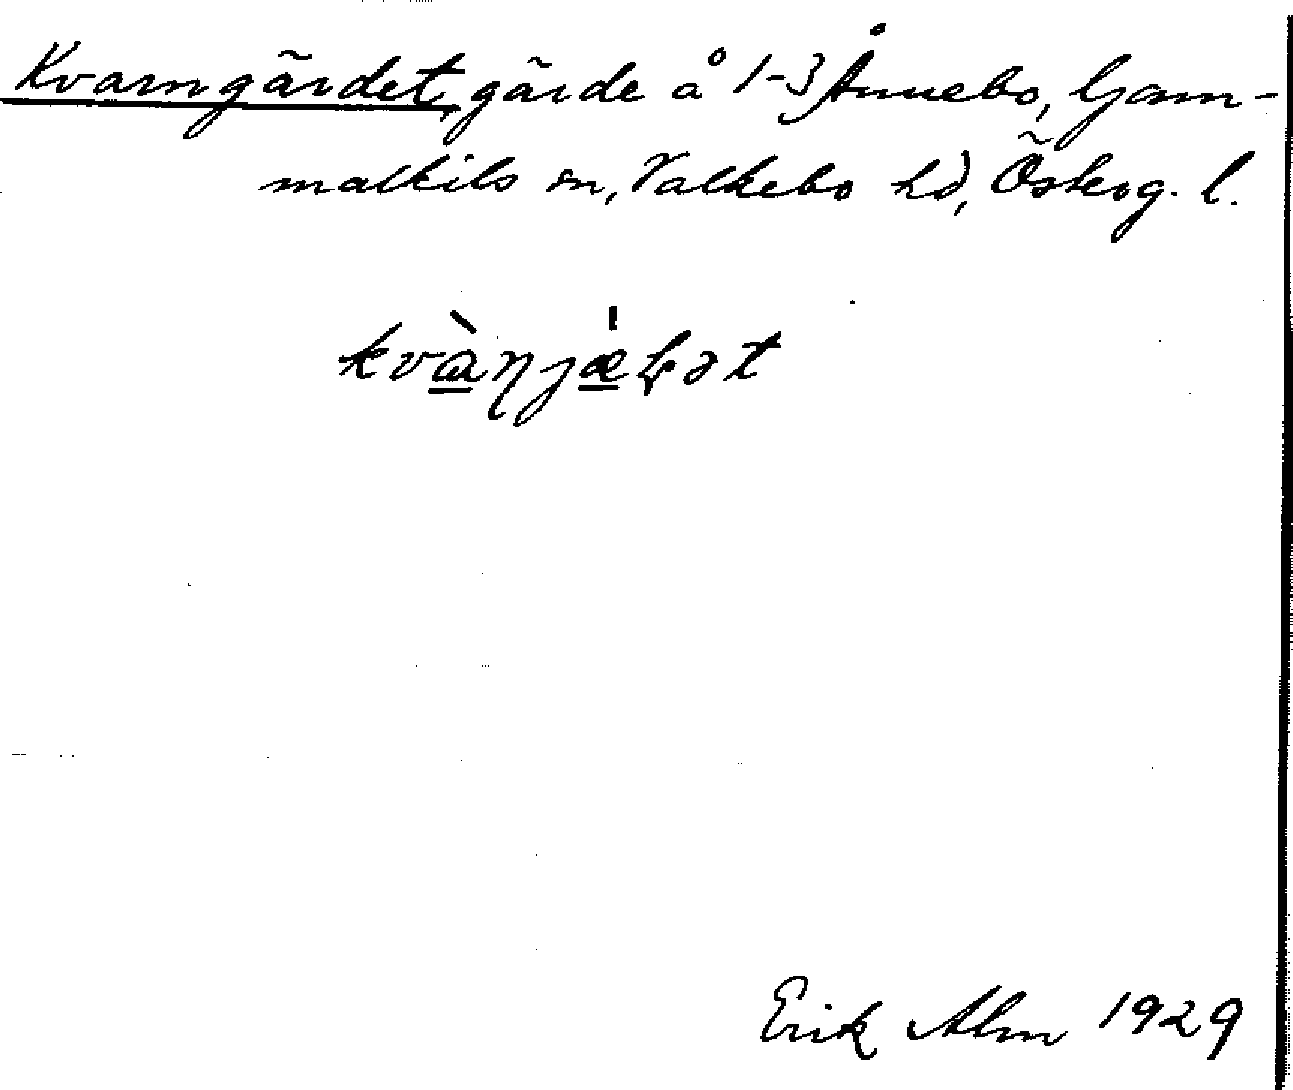 Kvarngärdet, gärde å 1-3 Ånnebo, Gam-
malkils sn, Valkebo hd, Österg. l.
Erik Alm 1929